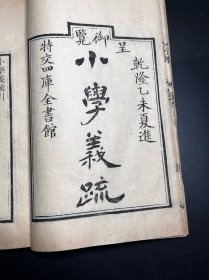 呈
御覽
乾隆乙未夏進
小學義疏
特交四庫全書館